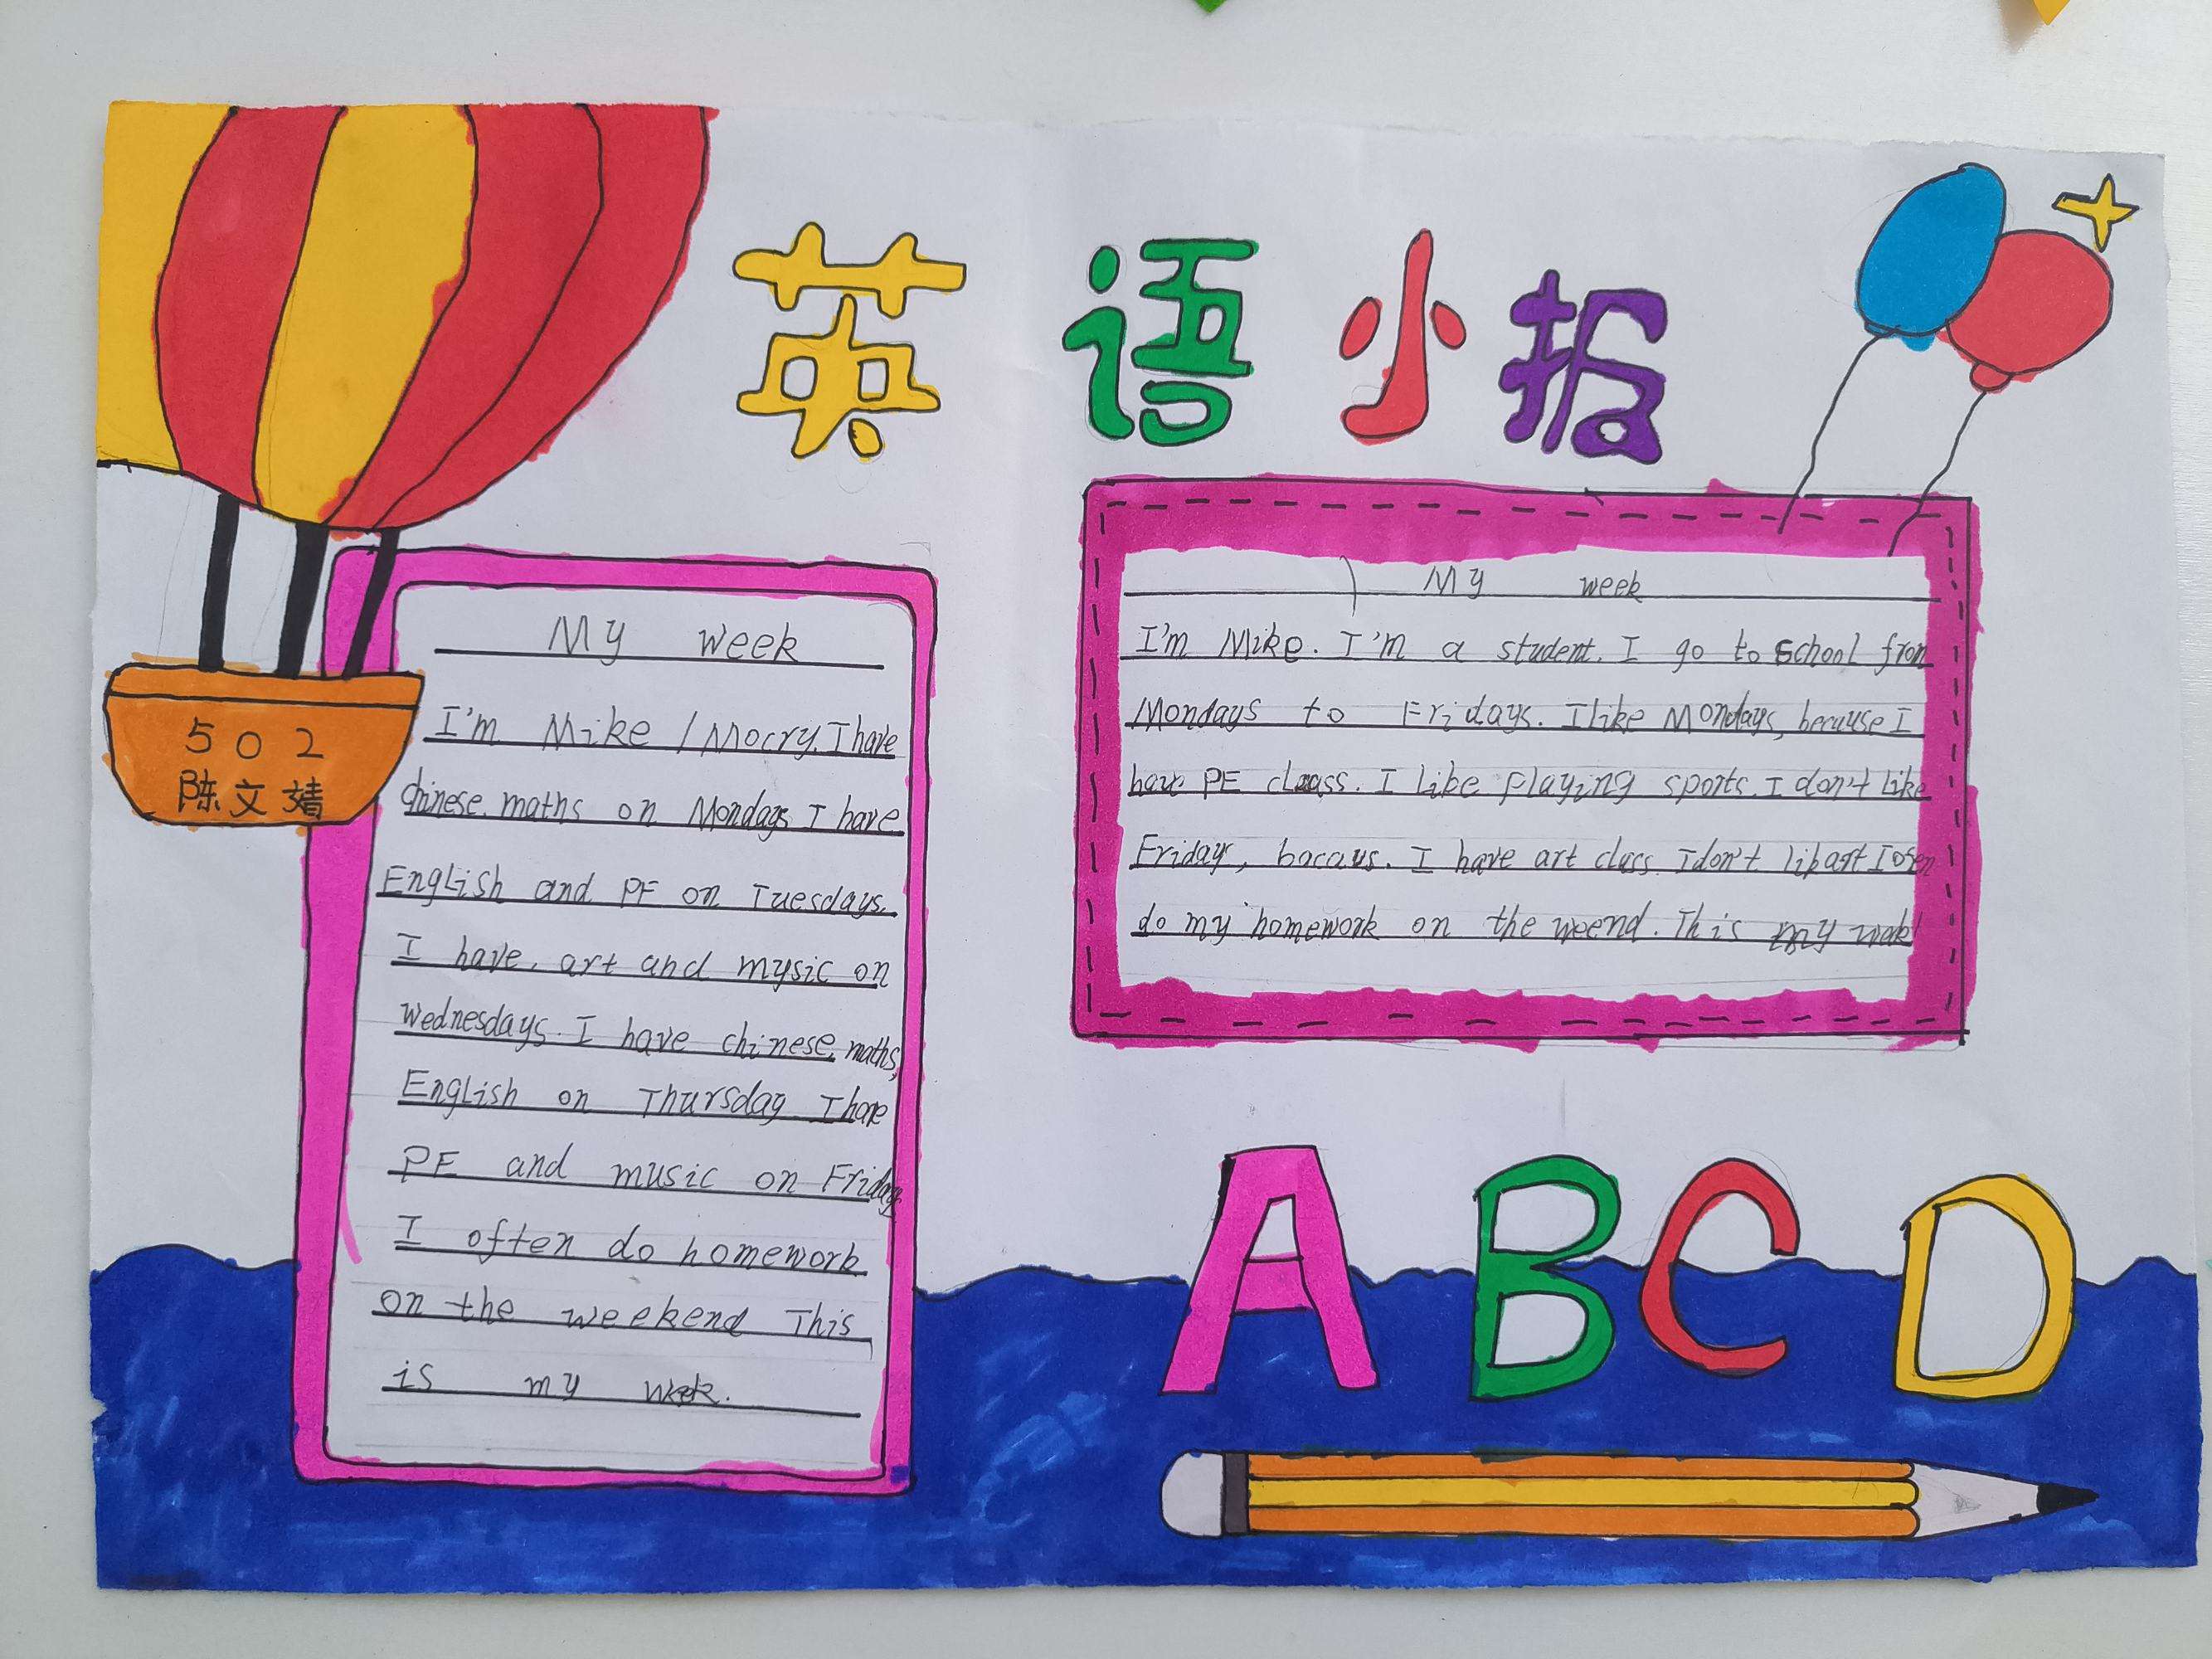 英语小报
502
陈文婧
My week
I'm Mike / Mocry. I have
chinese. maths on Mondays I have
English and PE on Tuesdays.
I have. art and mysic on
wednesdays. I have chinese, maths,
English on Thursday I have
PE and music on Fridays
I often do homework
on the weekend This
is my week.
My week
I'm Mike. I'm a student. I go to school from
Mondays to Fridays. I like Mondays, because I
have PE class. I like playing sports. I don't like
Fridays, bacaus. I have art class. I don't lik art I ofen
do my homework on the weend. This my week!
ABCD